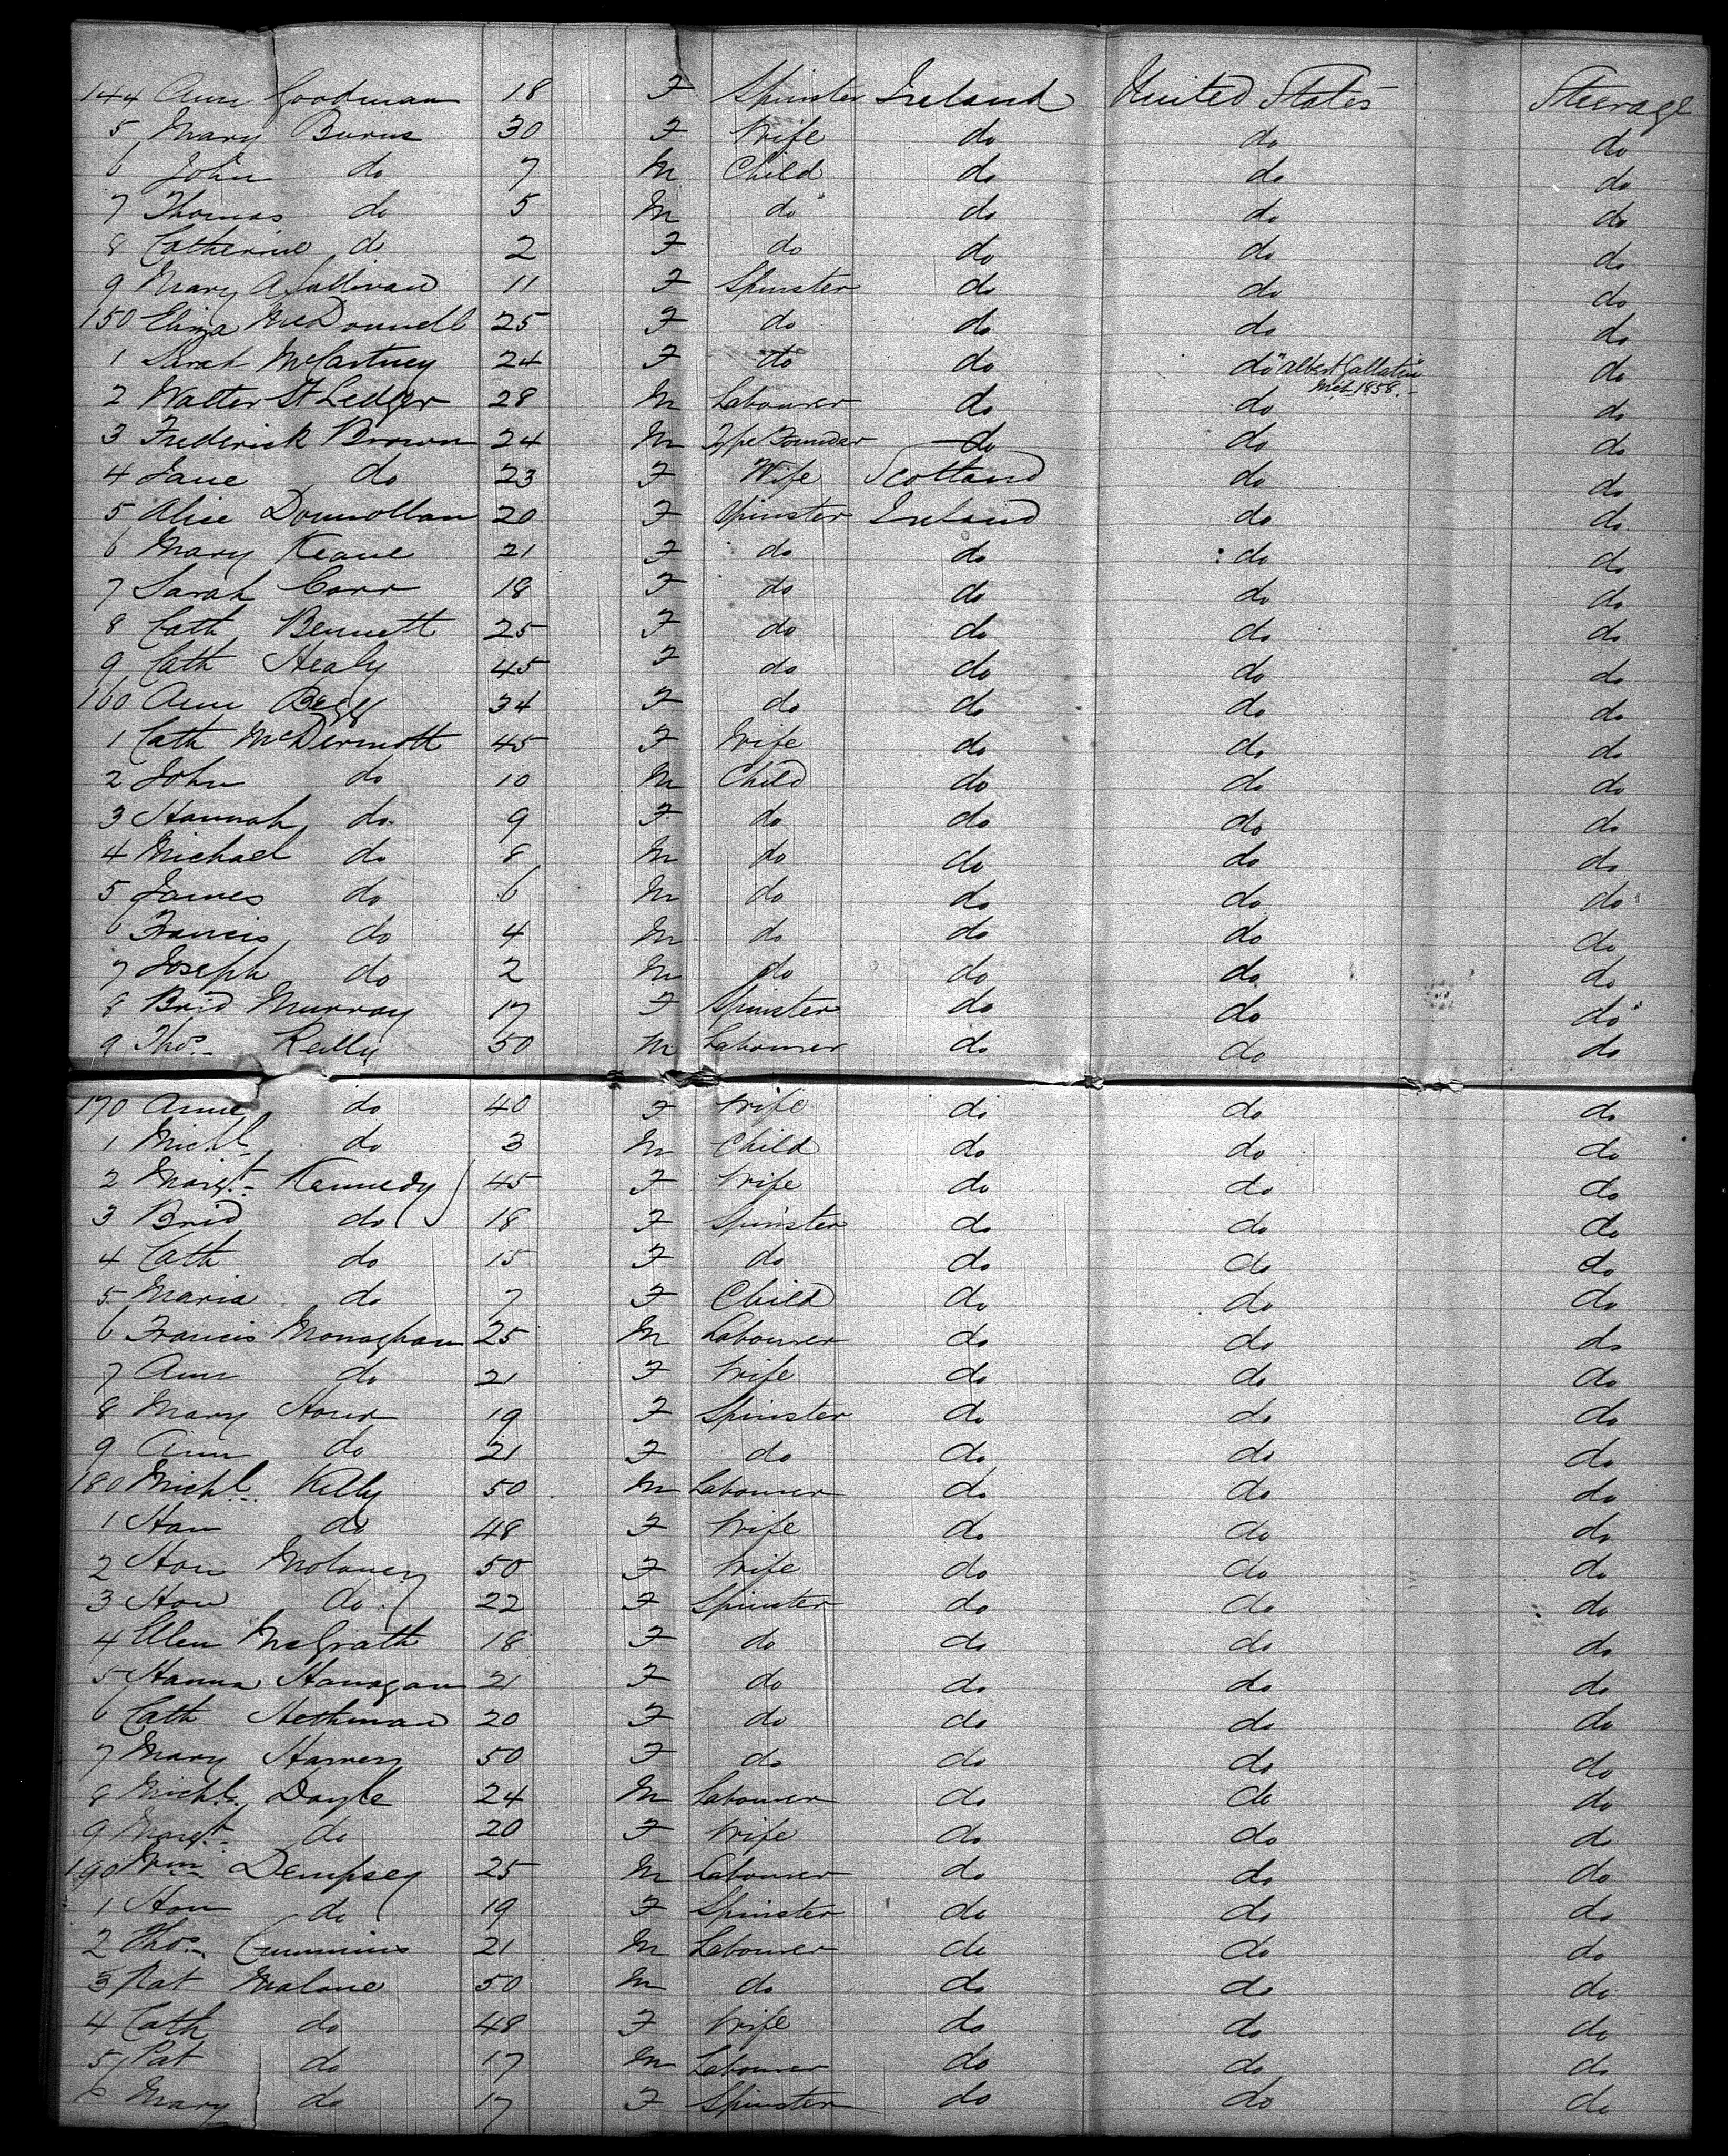 144 Ann Goodman 18 F Spinster Ireland United States Steerage
5 Mary Burns 30 F Wife do do do
6 John do 7 M Child do do do
7 Thomas do 5 M do do do do
8 Catherine do 2 F do do do do
9 Mary A Sullivan 11 F Spinster do do do
150 Eliza McDonnell 25 F do do do do
1 Sarah McCartney 24 F do do do "Albert Gallatin" do
Mch 1858.
2 Walter St Ledger 28 M Labourer do do do
3 Frederick Brown 24 M Type Founder do do do
4 Jane do 23 F Wife Scotland do do
5 Alice Donnollan 20 F Spinster Ireland do do
6 Mary Keane 21 F do do do do
7 Sarah Carr 18 F do do do do
8 Cath Bennett 25 F do do do do
9 Cath Healy 45 F do do do do
160 Ann 34 F do do do do
1 Cath McDermott 45 F Wife do do do
2 John do 10 M Child do do do
3 Hannah do 9 F do do do do
4 Michael do 8 M do do do do
5 James do 6 M do do do do
6 Francis do 4 M do do do do
7 Joseph do 2 M do do do do
8 Brid Murray 17 F Spinster do do do
9 Thos. Reilly 50 M Labourer do do do
170 Anne do 40 F Wife do do do
1 Michl do 3 M Child do do do
2 Margt. Kennedy 45 F Wife do do do
3 Brid do 18 F Spinster do do do
4 Cath do 15 F do do do do
5 Maria do 7 F Child do do do
6 Francis Monaghan 25 M Labourer do do do
7 Ann do 21 F Wife do do do
8 Mary 19 F Spinster do do do
9 Ann do 21 F do do do do
180 Michl. Kelly 50 M Labourer do do do
1 Han do 48 F Wife do do do
2 Hon Moloney 50 F Wife do do do
3 Hon do 22 F Spinster do do do
4 Ellen McGrath 18 F do do do do
5 Hanna Hanagan 21 F do do do do
6 Cath Hethman 20 F do do do do
7 Mary Harvey 50 F do do do do
8 Michl. Doyle 24 M Labourer do do do
9 Margt. do 20 F Wife do do do
190 Wm Dempsey 25 M Labourer do do do
1 Hon do 19 F Spinster do do do
2 Thos. Cummins 21 M Labourer do do do
3 Pat Malone 50 M do do do do
4 Cath do 48 F Wife do do do
5 Pat do 17 M Labourer do do do
6 Mary do 17 F Spinster do do do